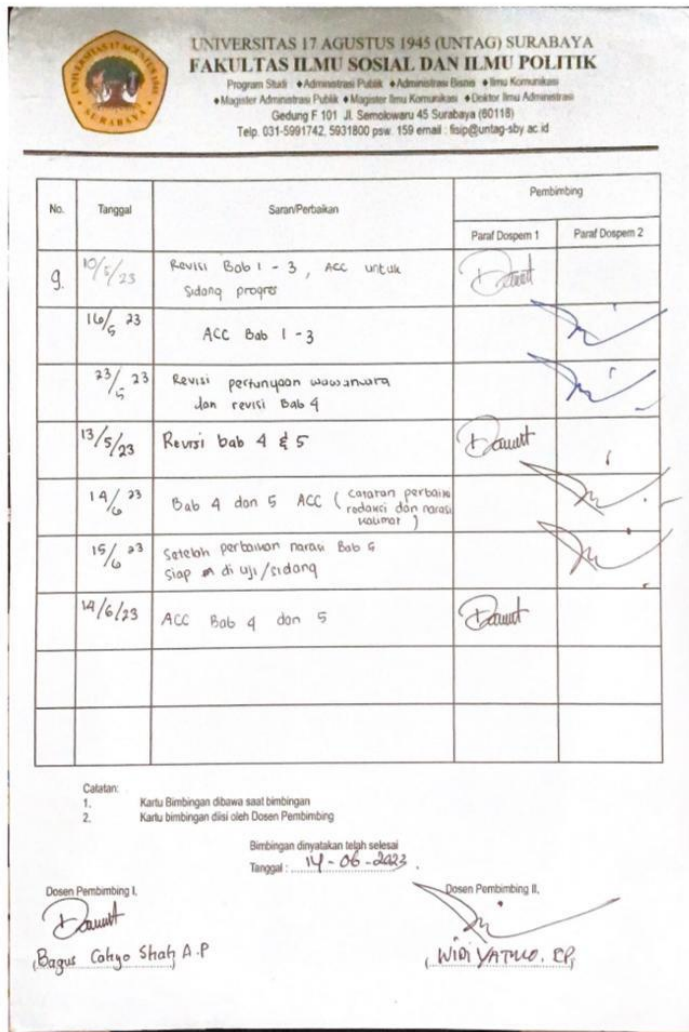 UNIVERSITAS 17 AGUSTUS 1945
SURABAYA
UNIVERSITAS 17 AGUSTUS 1945 (UNTAG) SURABAYA
FAKULTAS ILMU SOSIAL DAN ILMU POLITIK
Program Studi : ♦Administrasi Publik ♦Administrasi Bisnis ♦Ilmu Komunikasi
♦Magister Administrasi Publik ♦Magister Ilmu Komunikasi ♦Doktor Ilmu Administrasi
Gedung F 101 Jl. Semolowaru 45 Surabaya (60118)
Telp. 031-5991742, 5931800 psw. 159 email : fisip@untag-sby.ac.id
No. Tanggal Saran/Perbaikan Pembimbing
Paraf Dospem 1 Paraf Dospem 2
9. 10/5/23 Revisi Bab 1 - 3, ACC untuk
Sidang progres
16/5 23 ACC Bab 1 - 3
23/5 23 Revisi pertanyaan wawancara
dan revisi Bab 4
13/5/23 Revisi bab 4 & 5
14/6 23 Bab 4 dan 5 ACC (catatan perbaikan
redaksi dan narasi
kalimat)
15/6 23 Setelah perbaikan narasi Bab
siap di uji/sidang
14/6/23 ACC Bab 4 dan 5
Catatan:
1. Kartu Bimbingan dibawa saat bimbingan
2. Kartu bimbingan diisi oleh Dosen Pembimbing
Bimbingan dinyatakan telah selesai
Tanggal : 14-06-2023.
Dosen Pembimbing I, Dosen Pembimbing II,
Bagus Cahyo Shah A.P